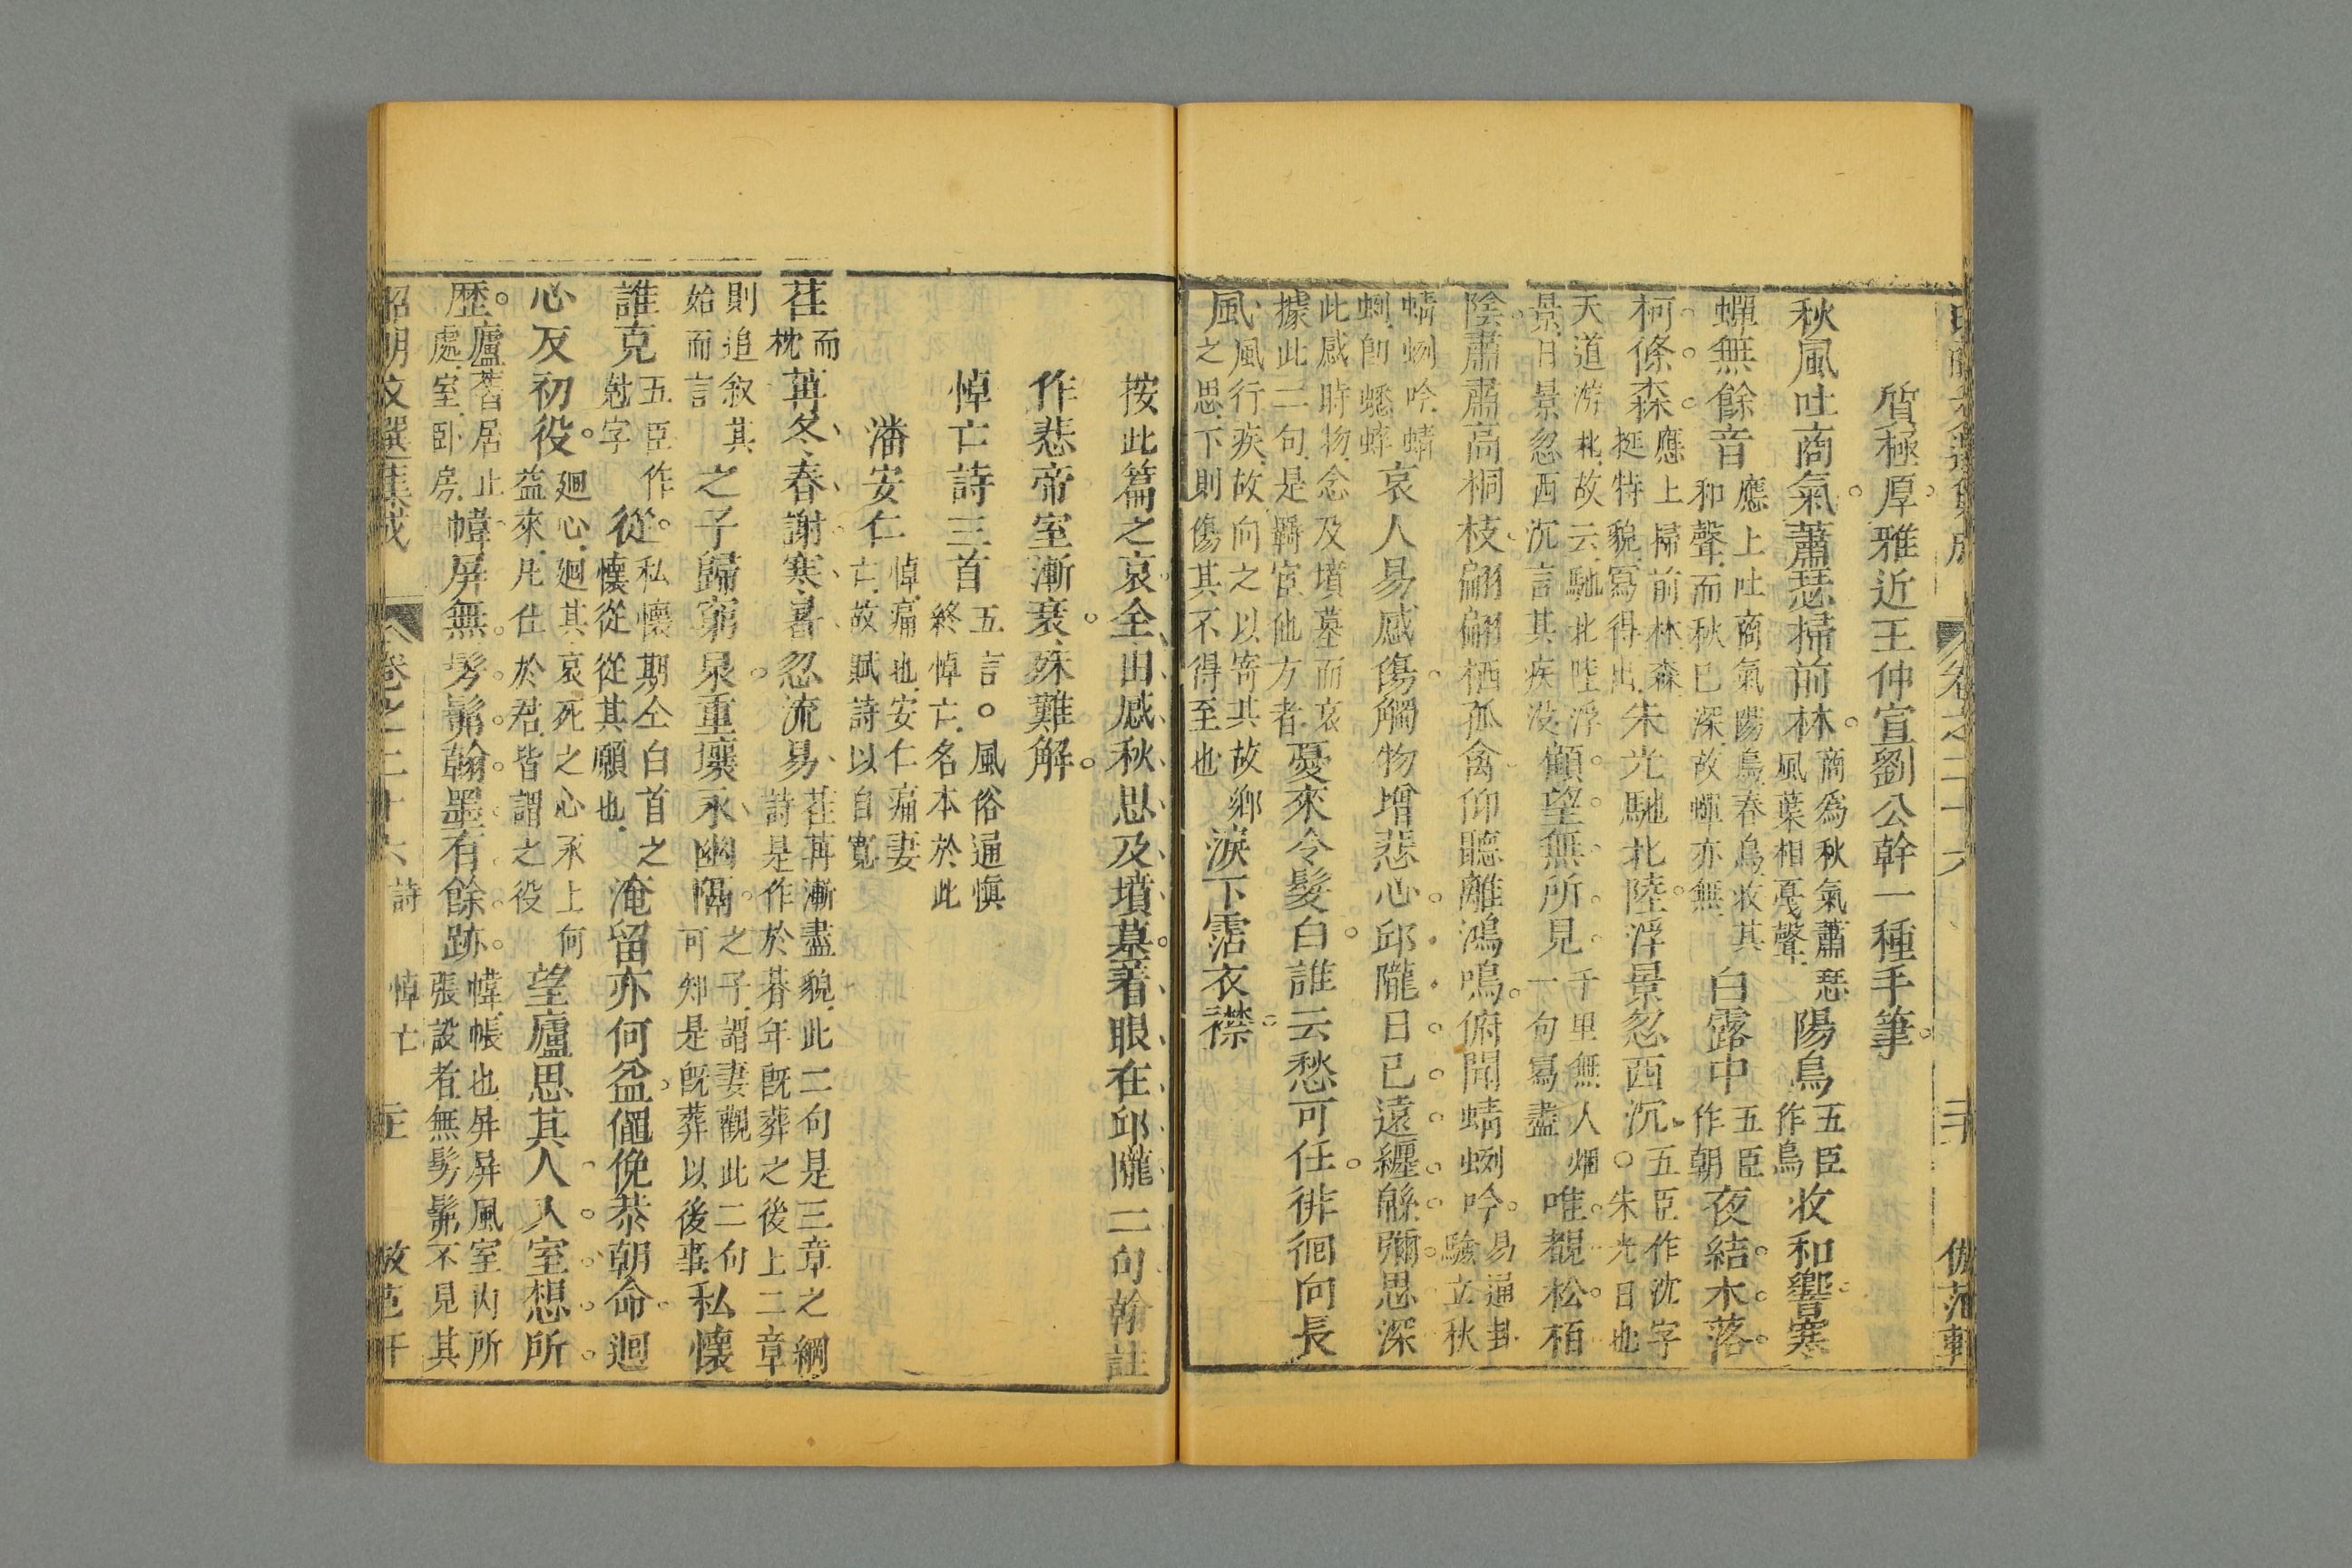 質極厚雅近王仲宣劉公幹一種手筆
秋風吐商氣蕭瑟掃前林商爲秋氣蕭瑟風葉相戞聲陽鳥五臣作鳥收和響寒
蟬無餘音應上吐商氣陽鳥春鳥收其和聲而秋已深故蟬亦無白露中五臣作朝夜結木落
柯條森應上掃前林森挺特貌寫得出朱光馳北陸浮景忽西沉○五臣作沈字朱光日也
天道游北故云馳北陸浮景日景忽西沉言其疾沒顧望無所見千里無人烟一句寫盡唯覩松栢
陰肅肅高桐枝翩翩栖孤禽仰聽離鴻鳴俯聞蜻蛚吟易通卦驗立秋
蜻蛚吟蜻蛚卽蟋蟀哀人易感傷觸物增悲心邱隴日已遠纏緜彌思深
此感時物念及墳墓而哀據此二句是羈宦他方者憂來令髮白誰云愁可任徘徊向長
風風行疾故向之以寄其故鄉之思下則傷其不得至也淚下霑衣襟
按此篇之哀全由感秋思及墳墓着眼在邱隴二句翰註
作悲帝室漸衰殊難解
悼亡詩三首五言○風俗通愼終悼亡名本於此
潘安仁悼痛也安仁痛妻亡故賦詩以自寬
荏而枕苒冬春謝寒暑忽流易荏苒漸盡貌此二句是三章之綱詩是作於朞年旣葬之後上二章
則追叙其始而言之子歸窮泉重壤永幽隔之子謂妻觀此二句可知是旣葬以後事私懷
誰克五臣作尅字從私懷期仝白首之懷從從其願也淹留亦何益僶俛恭朝命迴
心反初役廻心廻其哀死之心承上何益來凡仕於君皆謂之役望廬思其人入室想所
歷廬舊居止處室卧房幃屏無髣髴翰墨有餘跡幃帳也屏屏風室內所張設者無髣髴不見其